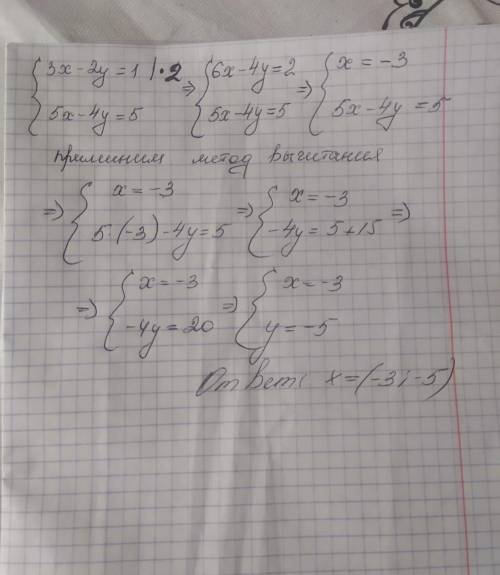 {3x-2y=1 |·2 => {6x-4y=2 => {x=-3
{5x-4y=5 {5x-4y=5 {5x-4y=5
применим метод вычитания
=> {x=-3 => {x=-3
{5·(-3)-4y=5 {-4y=5+15 =>
=> {x=-3 => {x=-3
{-4y=20 {y=-5
Ответ: x=(-3;-5)